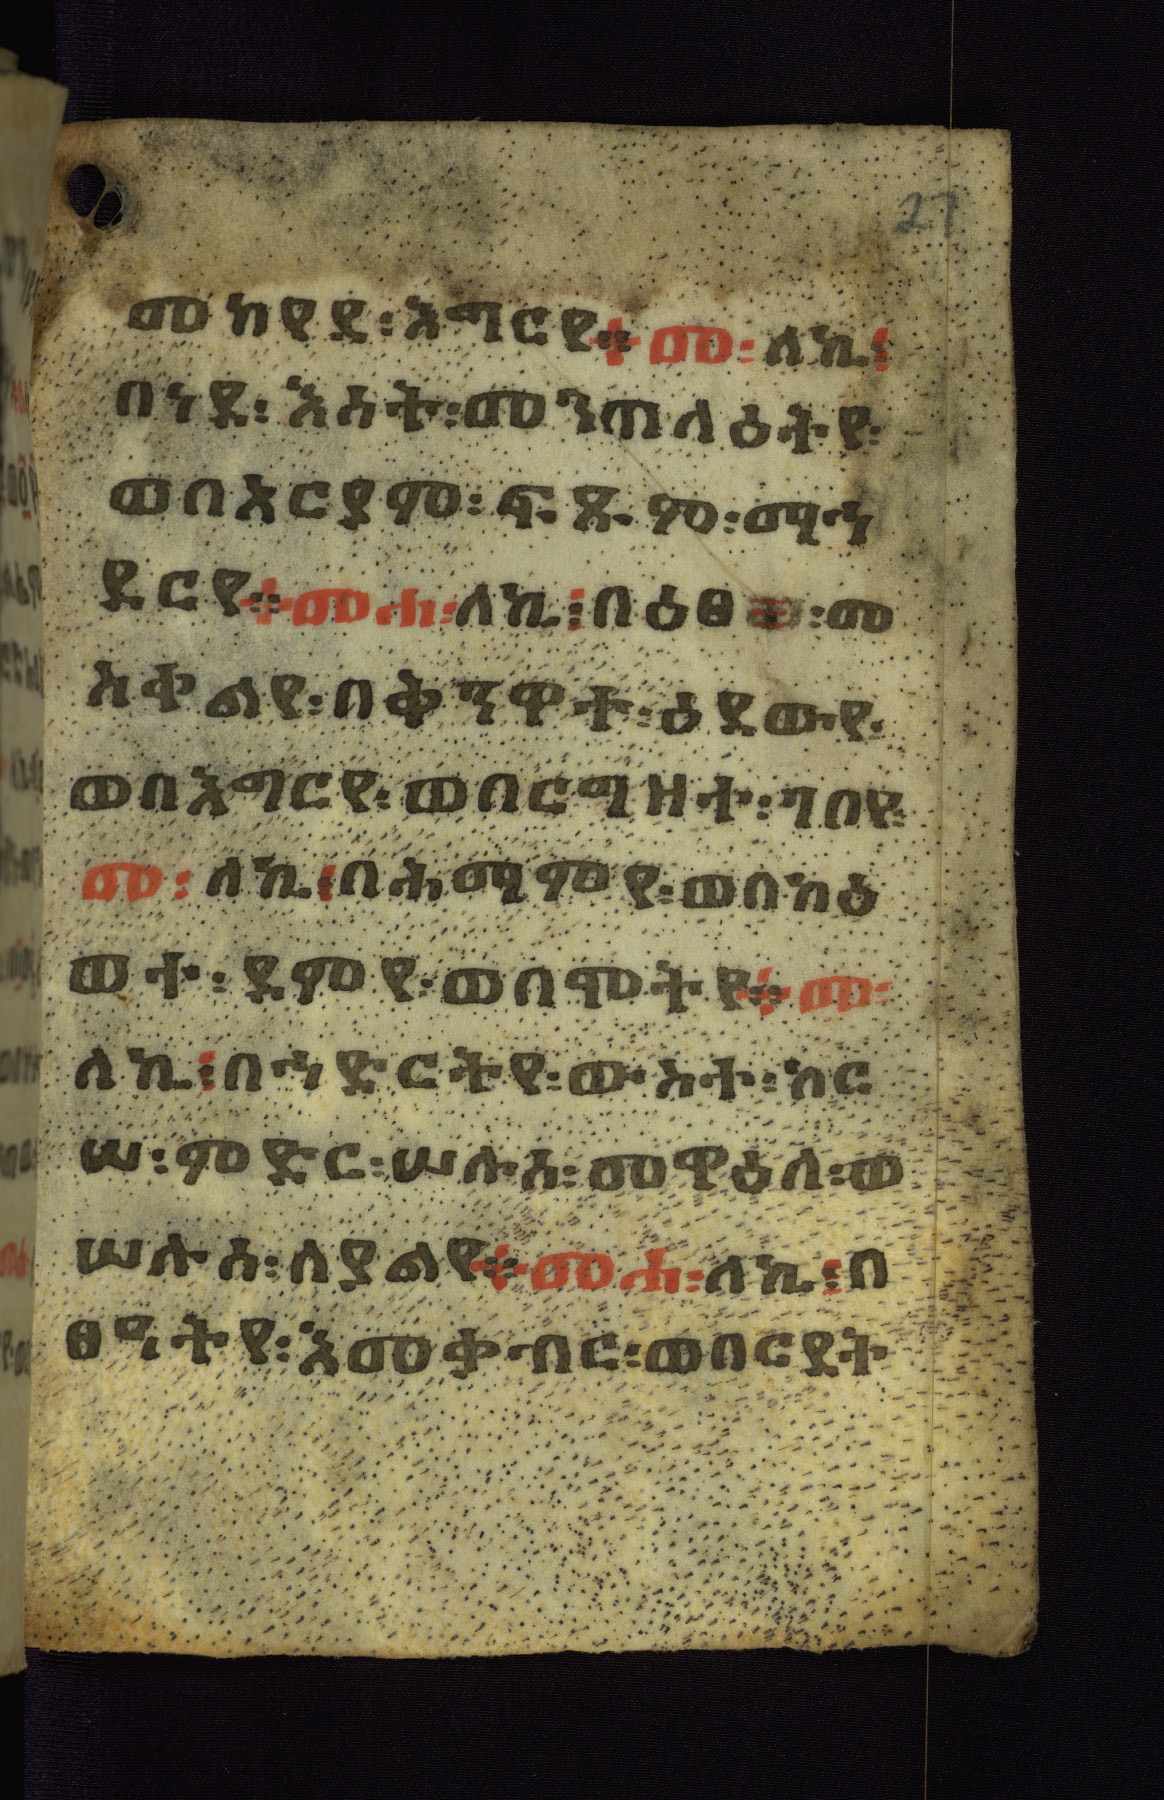 27
መከየደ፡እግርየ። መ፡ ለኪ፡
በነደ፡እሳት፡መንጠለዕትየ፡
ወበአርያም፡ፍጹም፡ማኅ
ደርየ። መሐ፡ለኪ፡በዕፀወ፡መ
ስቀልየ፡በቅንዋተ፡ዕደውየ፡
ወበእግርየ፡ወበርግዘተ፡ገቦየ፡
መ፡ ለኪ፡በሕማምየ፡ወበክዕ
ወተ፡ደምየ፡ወበሞትየ። መ፡
ለኪ፡በኅድርትየ፡ውስተ፡ከር
ሠ፡ምድር፡ሠሉሰ፡መዋዕለ፡ወ
ሠሉሰ፡ለያልየ። መሐ፡ለኪ፡በ
ፀኣትየ፡እመቃብር፡ወበርደት